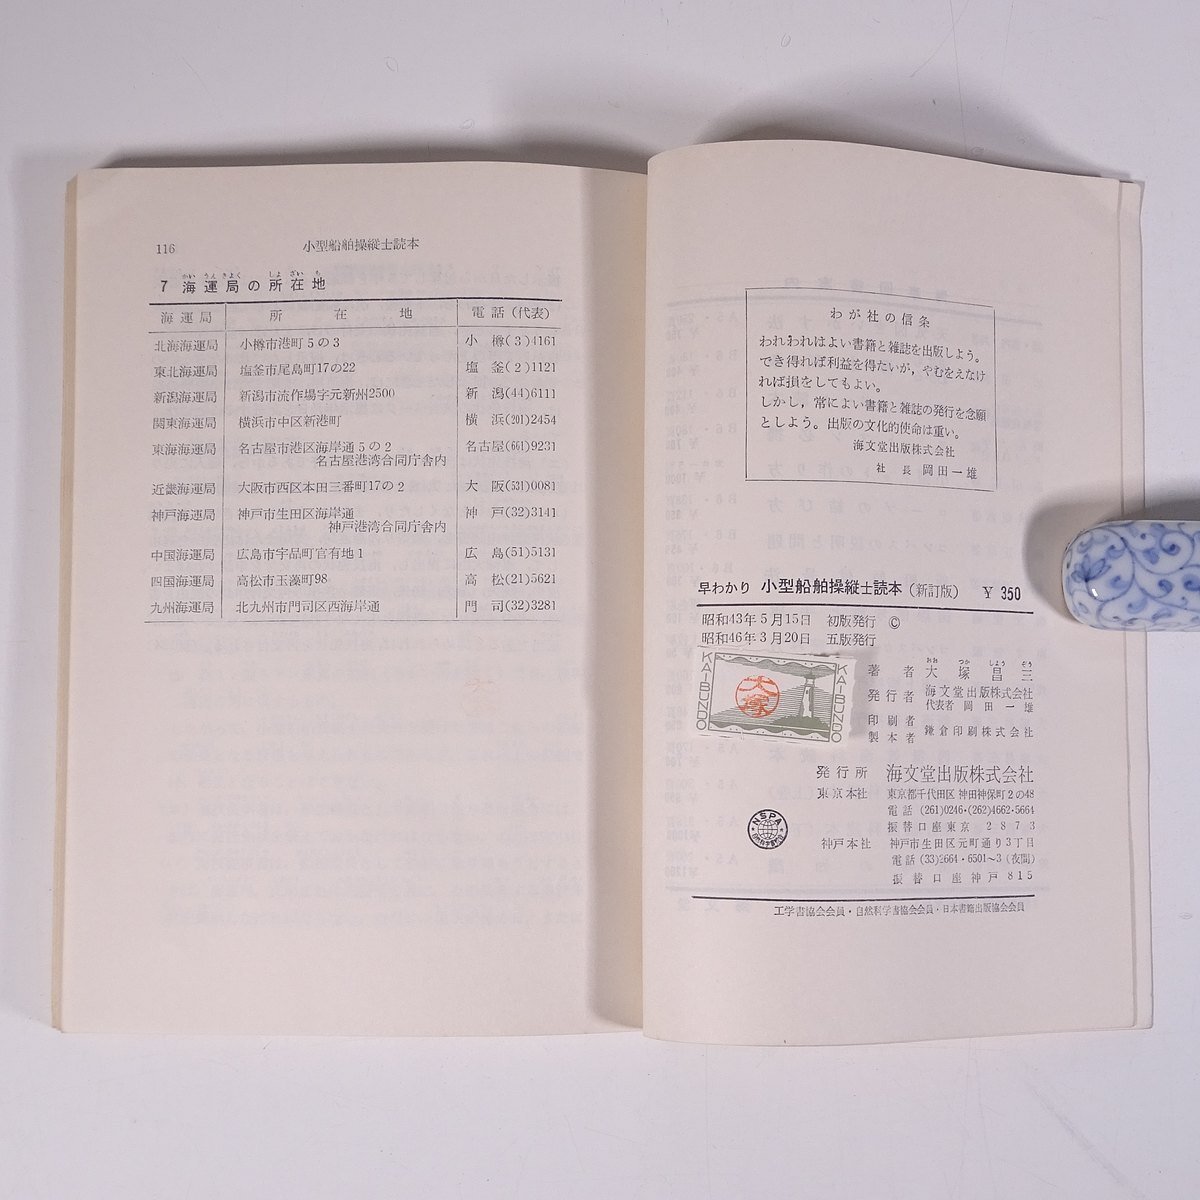 116
小型船舶操縦士読本
かい うん きよく しよ ざい ち
7 海運局の所在地
海運局 所在地 電話(代表)
北海海運局 小樽市港町5の3 小樽(3)4161
東北海運局 塩釜市尾島町17の22 塩釜(2)1121
新潟海運局 新潟市流作場字元新州2500 新潟(44)6111
関東海運局 横浜市中区新港町 横浜(201)2454
東海海運局 名古屋市港区海岸通5の2 名古屋(661)9231
名古屋港湾合同庁舎内
近畿海運局 大阪市西区本田三番町17の2 大阪(531)0081
神戸海運局 神戸市生田区海岸通 神戸(32)3141
神戸港湾合同庁舎内
中国海運局 広島市宇品町官有地1 広島(51)5131
四国海運局 高松市玉藻町98 高松(21)5621
九州海運局 北九州市門司区西海岸通 門司(32)3281
わが社の信条
われわれはよい書籍と雑誌を出版しよう。
でき得れば利益を得たいが,やむをえなけ
れば損をしてもよい。
しかし,常によい書籍と雑誌の発行を念願
としよう。出版の文化的使命は重い。
海文堂出版株式会社
社長 岡田一雄
早わかり 小型船舶操縦士読本(新訂版) ¥350
昭和43年5月15日 初版発行 ©
昭和46年3月20日 五版発行
KAIBUNDO
大塚
KAIBUNDO
おお つか しよう ぞう
著者 大塚昌三
発行者 海文堂出版株式会社
代表者 岡田一雄
印刷者
製本者 鎌倉印刷株式会社
発行所 海文堂出版株式会社
東京本社 東京都千代田区神田神保町2の48
電話 (261)0246・(262)4662・5664
振替口座東京 2873
NSPA
神戸本社 神戸市生田区元町通り3丁目
電話 (33)2664・6501〜3 (夜間)
振替口座神戸815
工学書協会会員・自然科学書協会会員・日本書籍出版協会会員